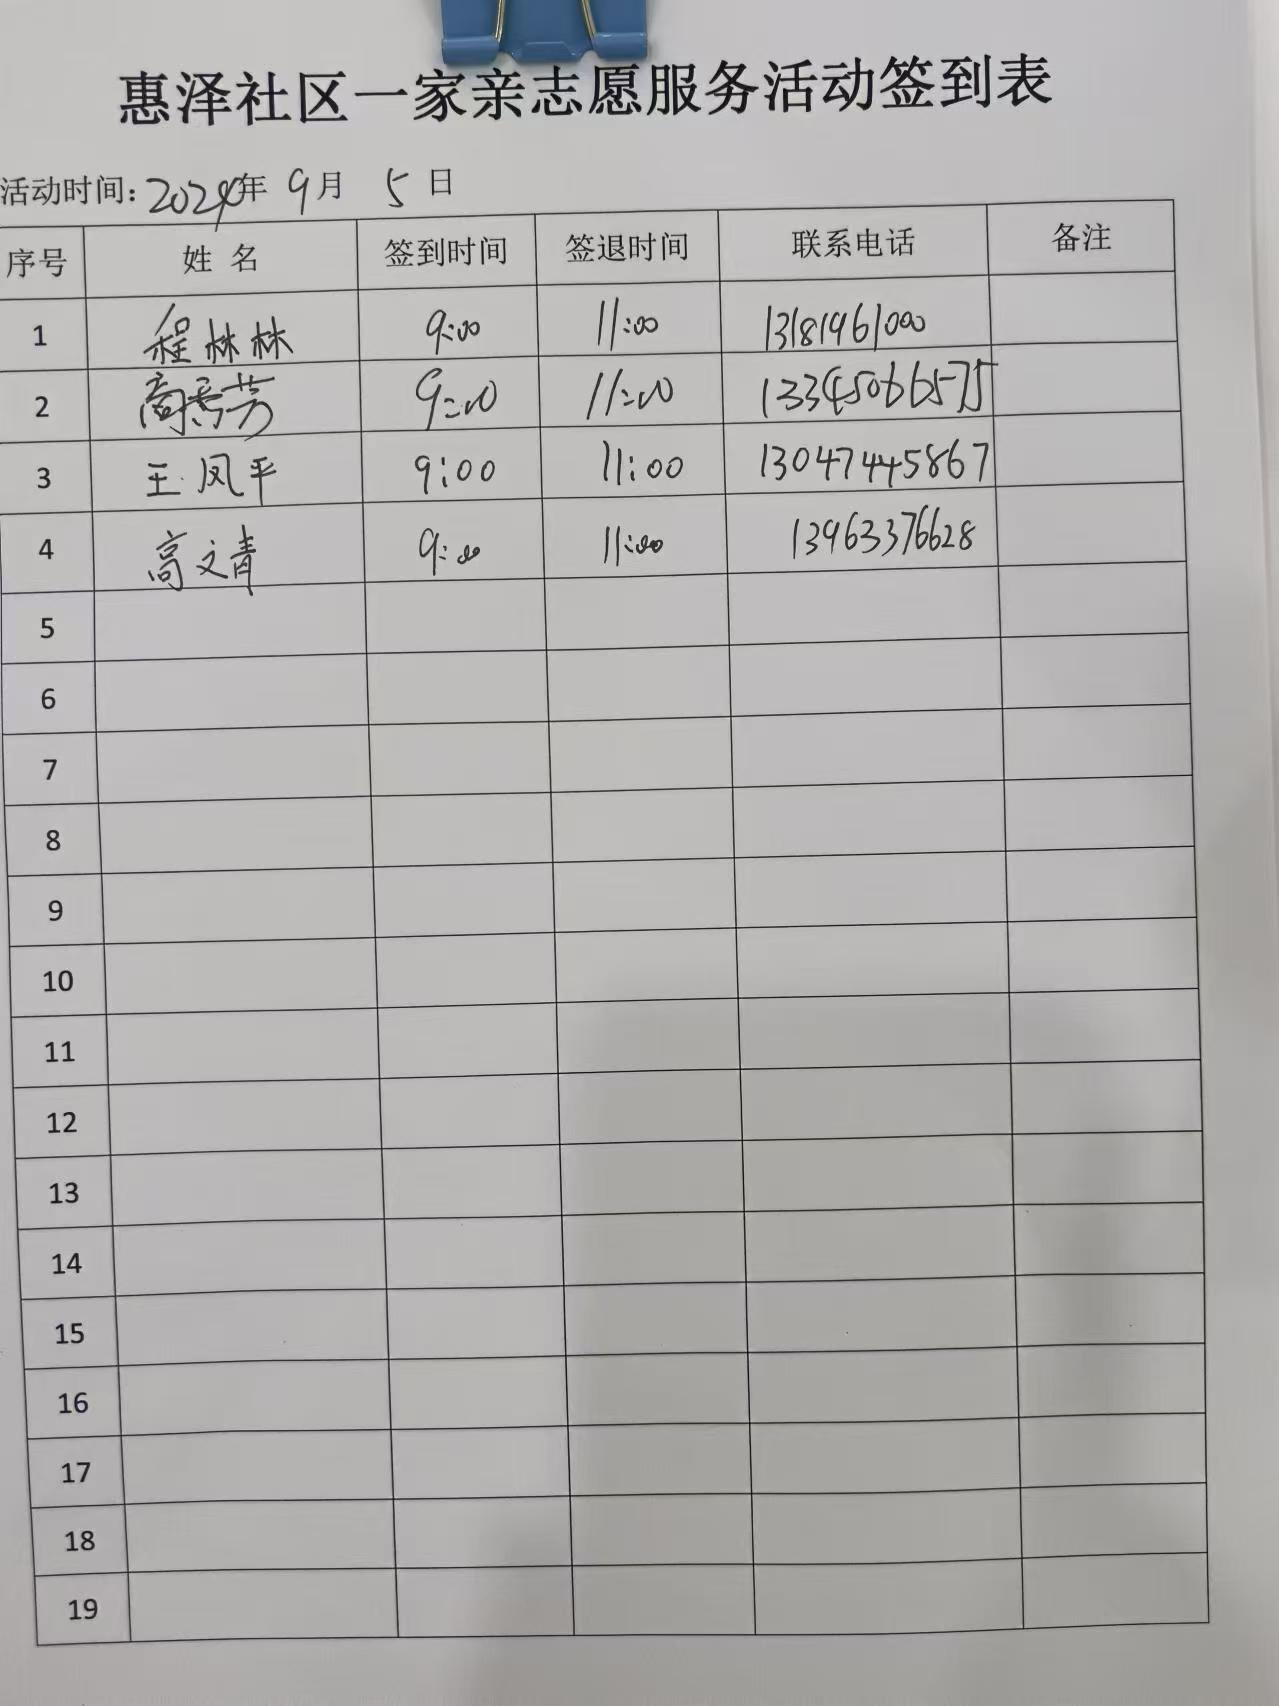 惠泽社区一家亲志愿服务活动签到表
活动时间: 2024年 9月 5日
序号 姓 名 签到时间 签退时间 联系电话 备注
1 程林林 9:00 11:00 13181961000
2 芳 9:00 11:00 13345066575
3 王凤平 9:00 11:00 13047445867
4 高文青 9:00 11:00 13963376628
5
6
7
8
9
10
11
12
13
14
15
16
17
18
19